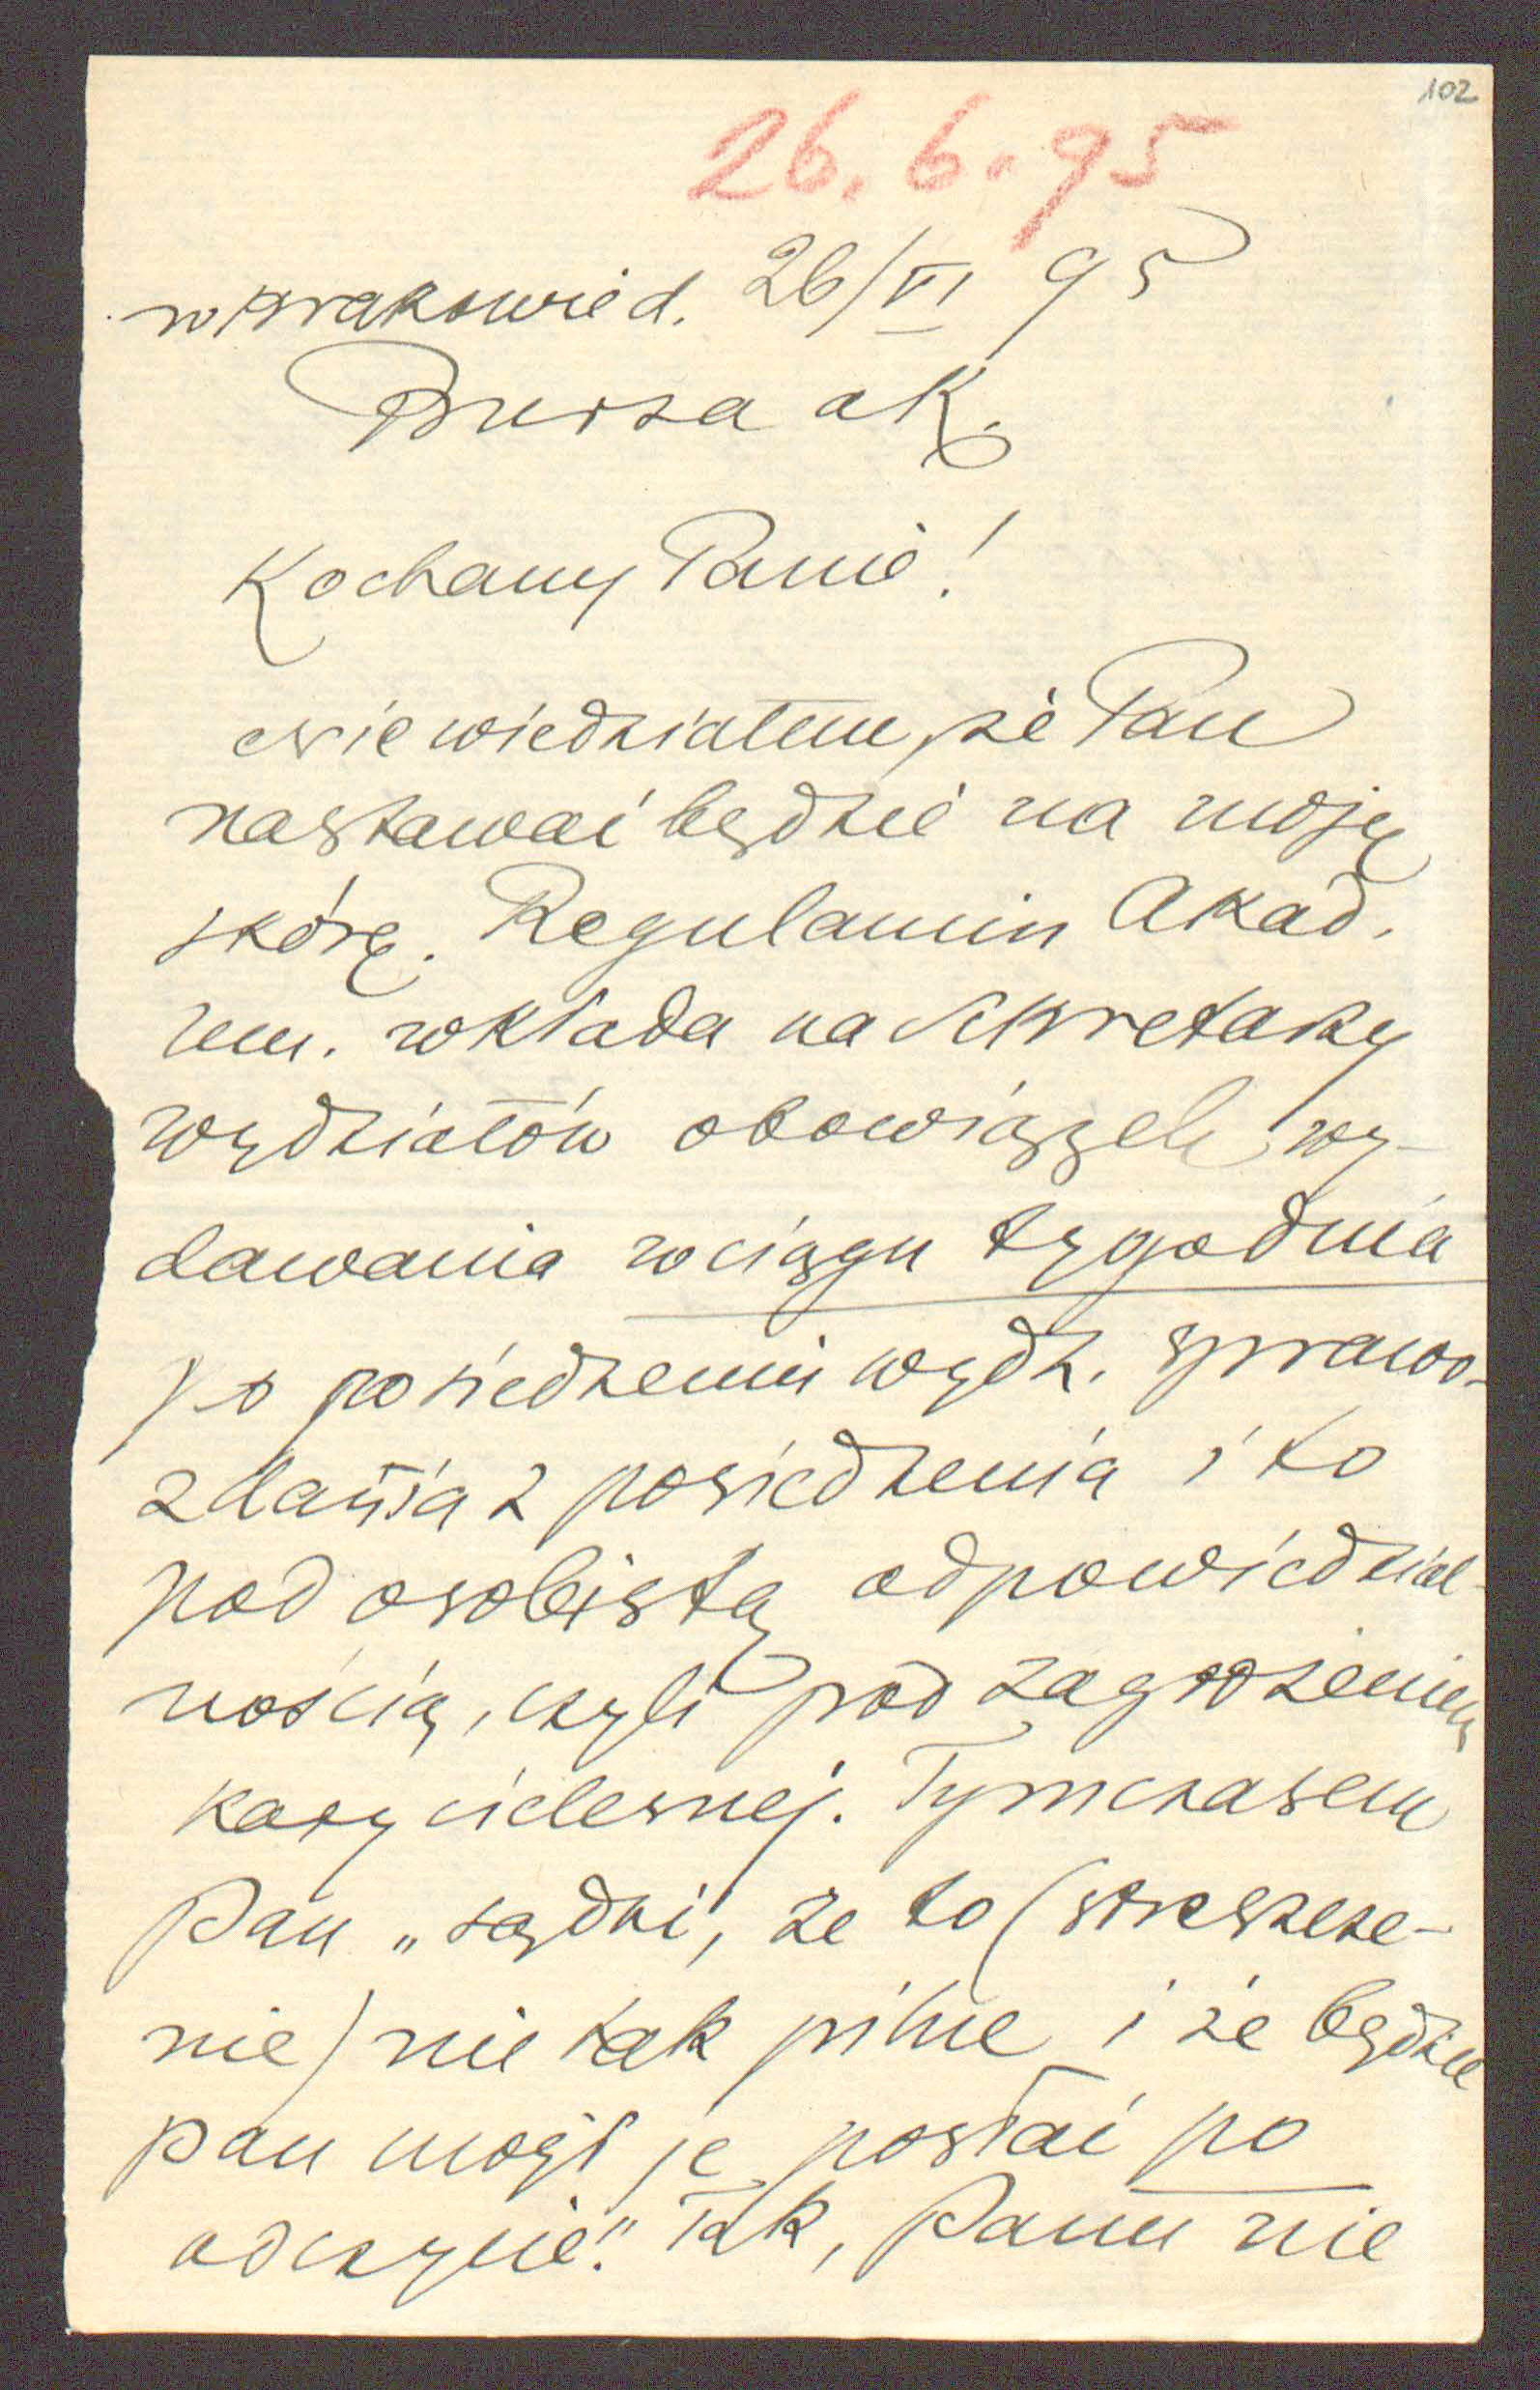 102
26. 6. 95
w Krakowie d. 26/VI 95
Bursa ak.
Kochany Panie!
Nie wiedziałem, że Pan
nastawać będzie na moję
skórę. Regulamin Akad.
um. wkłada na sekretarzy
wydziałów obowiązek wy-
dawania w ciągu tygodnia
po posiedzeniu wydz. sprawo-
zdania z posiedzenia i to
pod osobistą odpowiedzial-
nością, czyli pod zagrożeniem
kary cielesnej. Tymczasem
Pan „sądzi, że to (streszcze-
nie) nie tak pilne i że będzie
Pan mógł je posłać po
odczycie." Tak, Panu nie